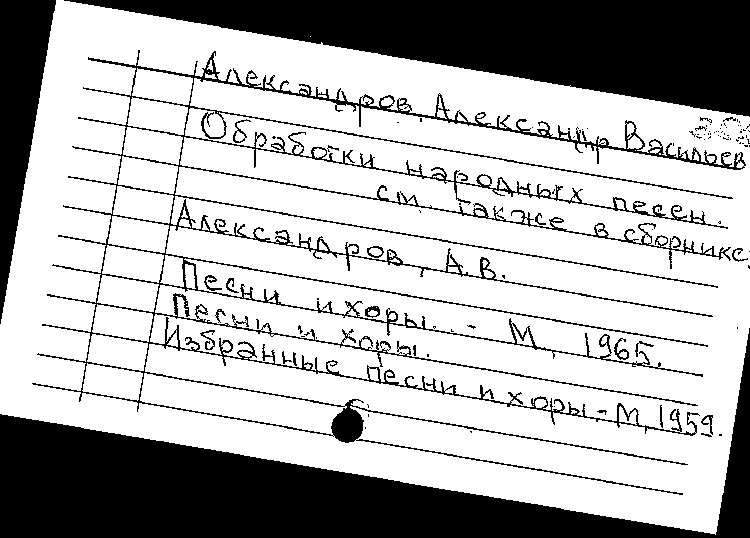 Александров, Александр Васильев
Обработки народных песен.
см. также в сборнике:
Александров, А.В.
Песни и хоры... - М., 1965.
Песни и хоры.
Избранные песни и хоры. - М, 1959.